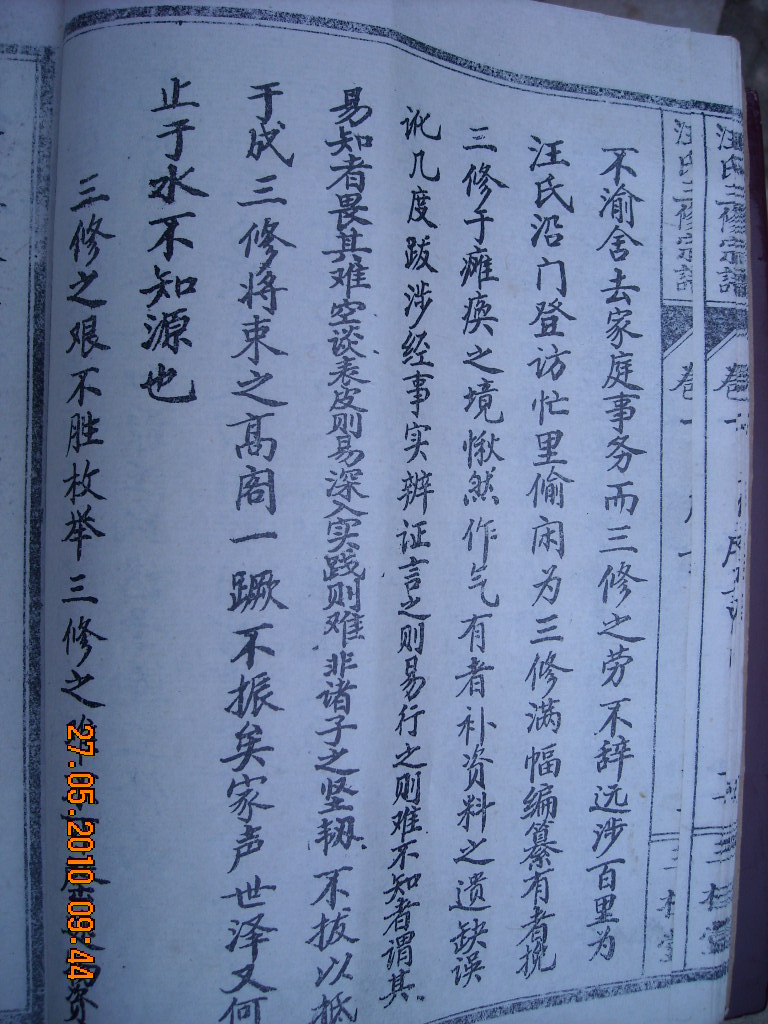 汪氏三修宗譜
卷一
三
汪氏三修宗譜
卷一
不渝舍去家庭事务而三修之劳不辞远涉百里为
汪氏沿门登访忙里偷闲为三修满幅编纂有者挽
三修于瘫痪之境愀然作气有者补资料之遗缺误
讹几度跋涉经事实辨证言之则易行之则难不知者谓其
易知者畏其难空谈表皮则易深入实践则难非诸子之坚韧不拔以抵
于成三修将束之高阁一蹶不振矣家声世泽又何
止于水不知源也
三修之艰不胜枚举三修之
资
27.05.2010 09:44